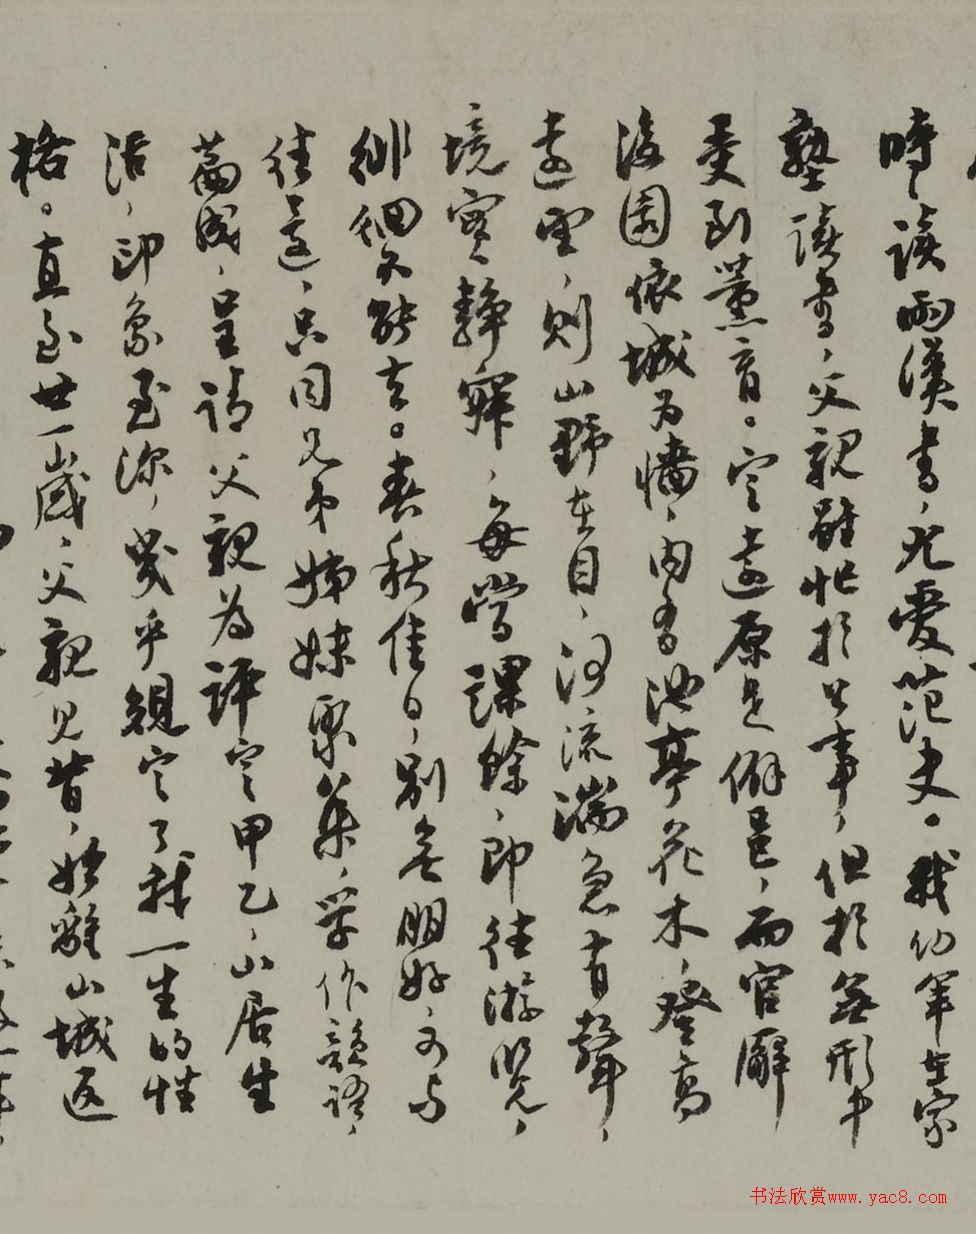 時、讀兩漢書，尤愛范史。我幼年在家
塾讀書，父親雖忙於公事，但於無形中
受到薰育。定遠原是僻邑，而官廨
後園依城為墻，内有池亭花木，登高
遠望，則山野在目，河流湍急有聲，
境實靜寂，每當課餘，即往游覽，
徘徊不能去。春秋佳日，別無朋好可与
往還，只同兄弟姊妹聚集，學作韻語，
篇成，呈請父親為評定甲乙，山居生
活，印象至深，幾乎規定了我一生的性
格。直至廿一歲，父親見背，始離山城返
书法欣赏www.yac8.com